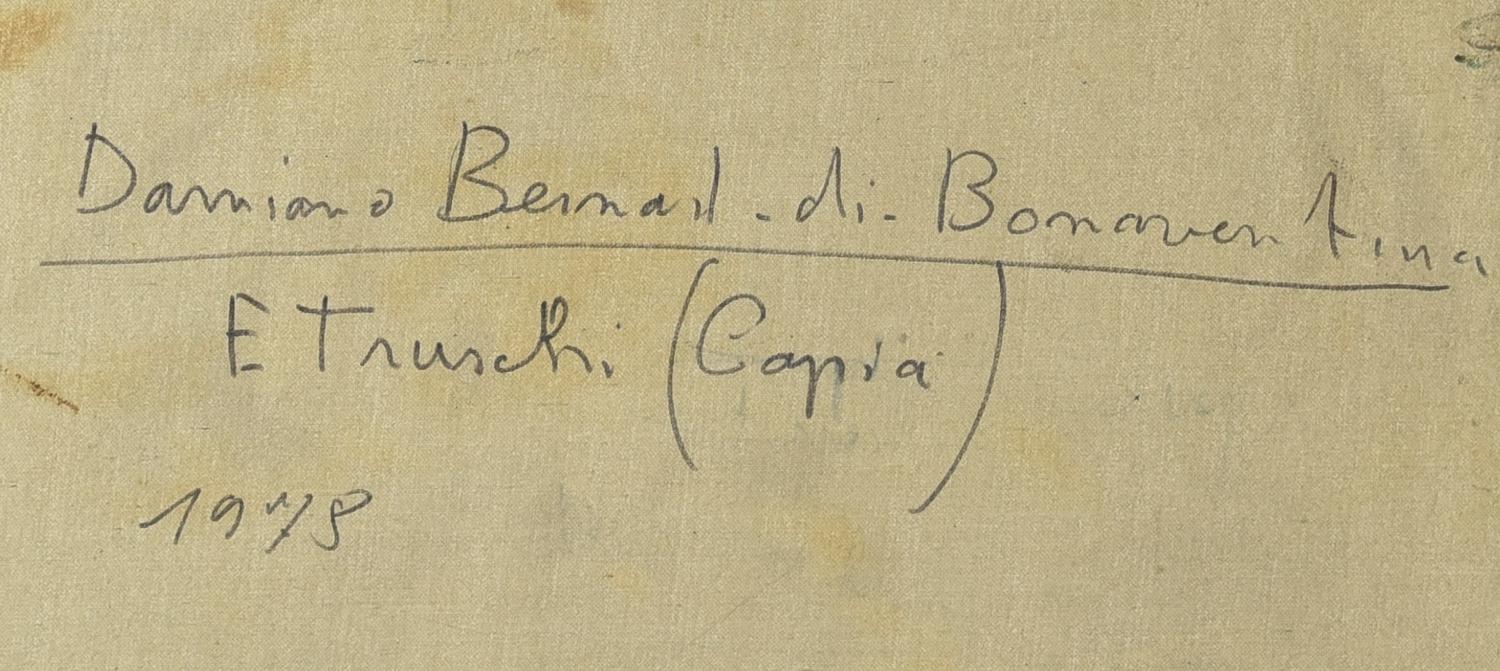 Damiano Bernard-di-Bonaventura
ETruschi (Capria)
1978